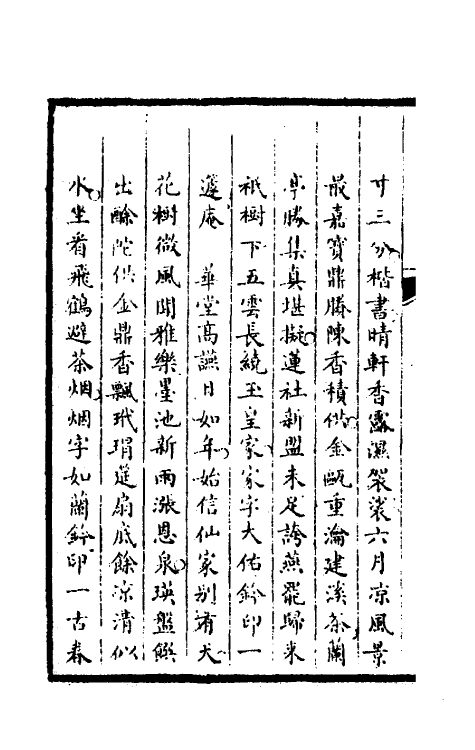 寸三分楷書晴軒香露濕袈裟六月凉風景
最嘉寶鼎騰陳香積供金甌重瀹建溪茶蘭
亭勝集真堪擬蓮社新盟未足誇燕罷歸来
祇樹下五雲長繞玉皇家家字大佑鈐印一
蘧庵　華堂高讌日如年始信仙家别有天
花樹微風聞雅樂墨池新雨漲恩泉瑛盤饌
出酴陀供金鼎香飄玳瑁筵扇底餘凉清似
水坐看飛鶴避茶烟烟字如蘭鈐印一古春